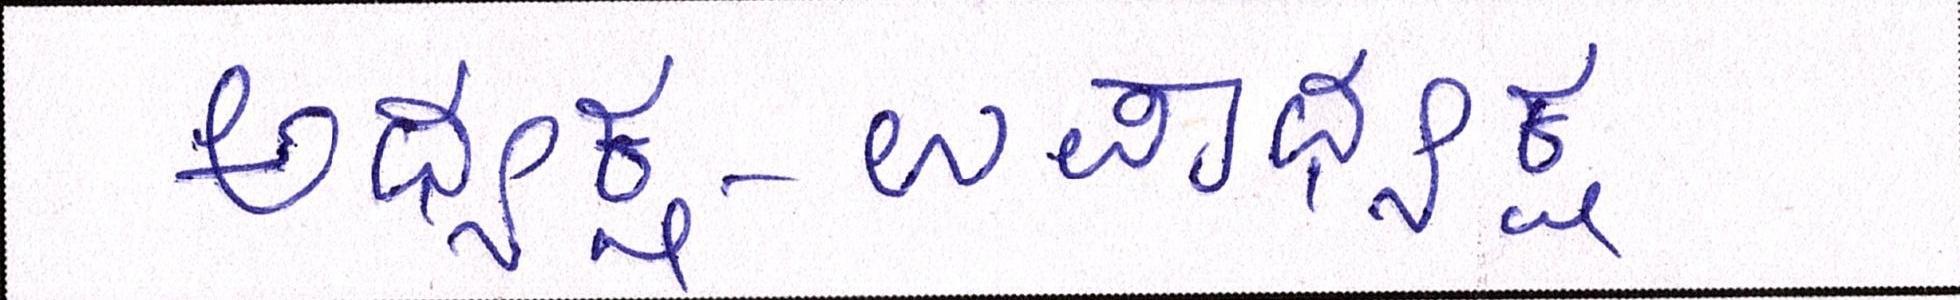 ಅಧ್ಯಕ್ಷ-ಉಪಾಧ್ಯಕ್ಷ